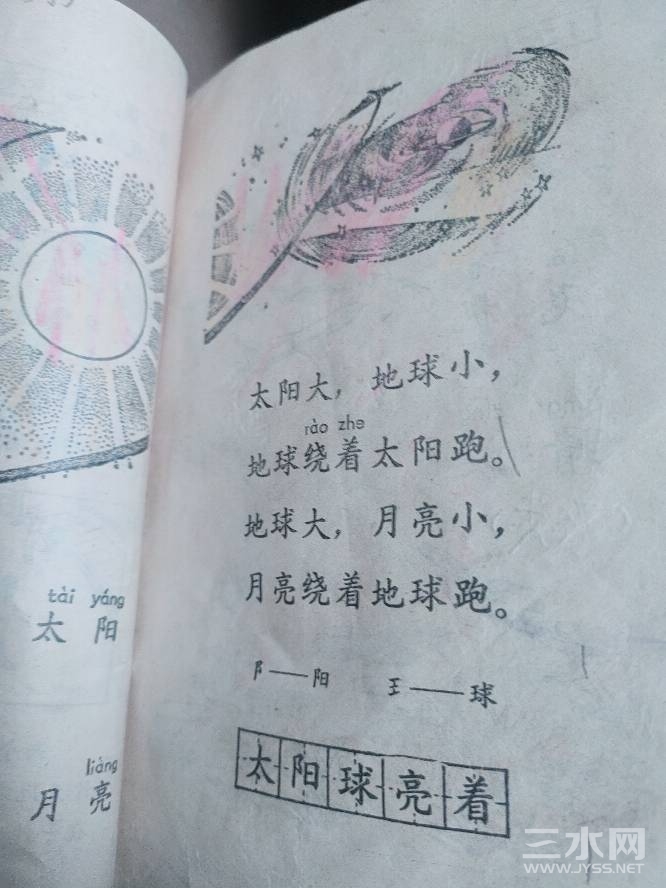 tài yáng
太 阳
liàng
月 亮
太阳大，地球小，
rào zhe
地球绕着太阳跑。
地球大，月亮小，
月亮绕着地球跑。
阝——阳 王——球
太阳球亮着
三水网
WWW.JYSS.NET